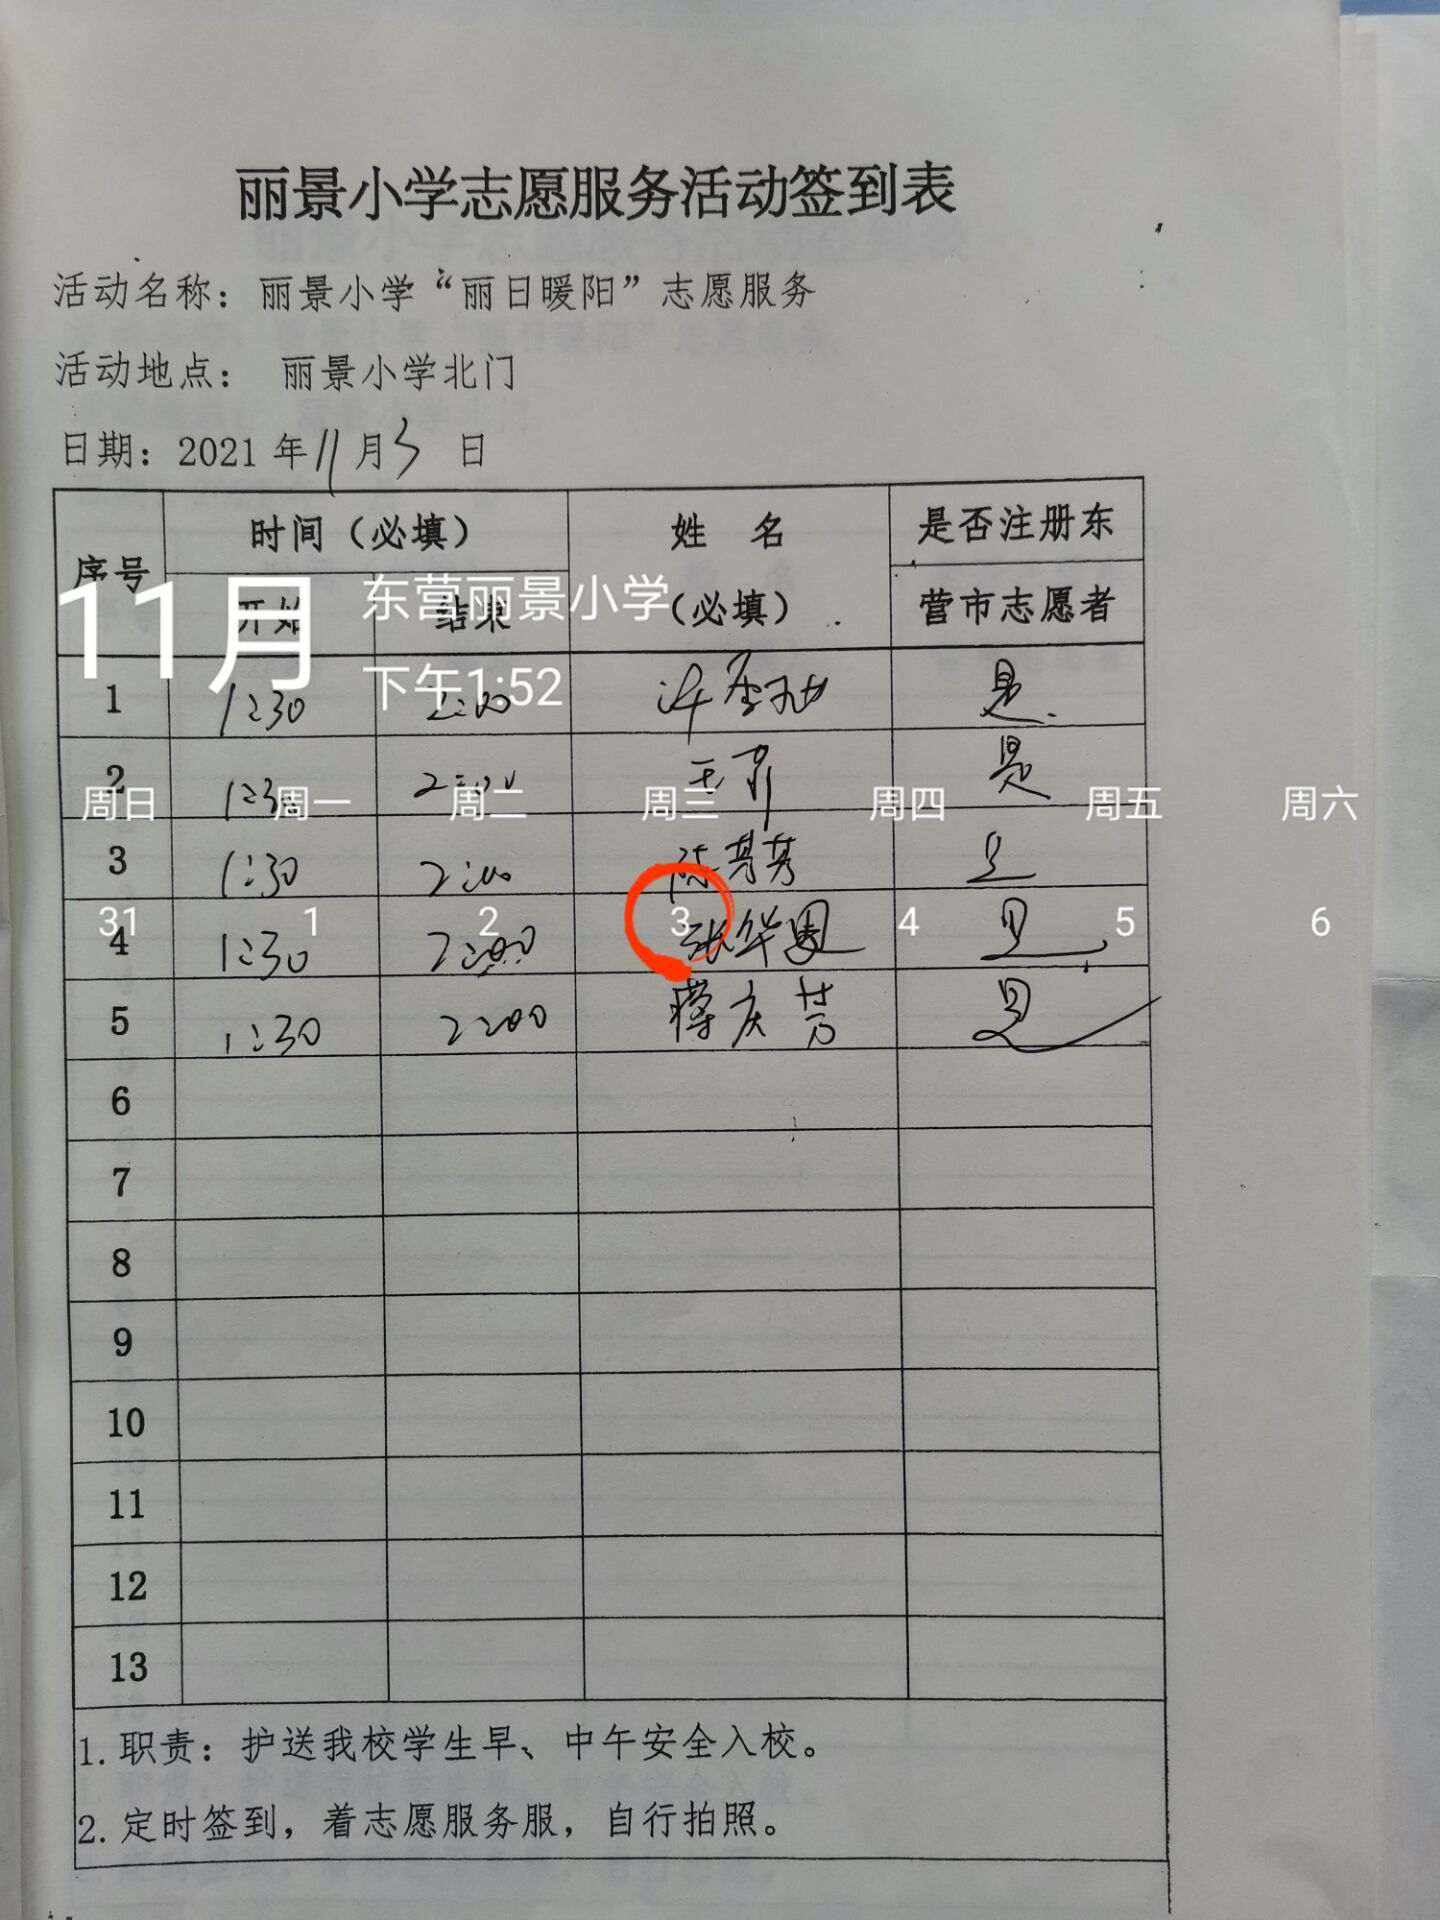 丽景小学志愿服务活动签到表
活动名称：丽景小学“丽日暖阳”志愿服务
活动地点： 丽景小学北门
日期：2021年11月3日
序号 时间（必填） 姓 名 是否注册东
开始 结束 （必填） 营市志愿者
11月 东营丽景小学
下午1:52
1 1:30 2:00 是
2 1:30 2:00 是
周日 周一 周二 周三 周四 周五 周六
3 1:30 2:00 陈芳芳 是
31 1 2 3 4 5 6
4 1:30 2:00 张华 是
5 1:30 2:00 庆芳 是
6
7
8
9
10
11
12
13
1.职责：护送我校学生早、中午安全入校。
2.定时签到，着志愿服务服，自行拍照。